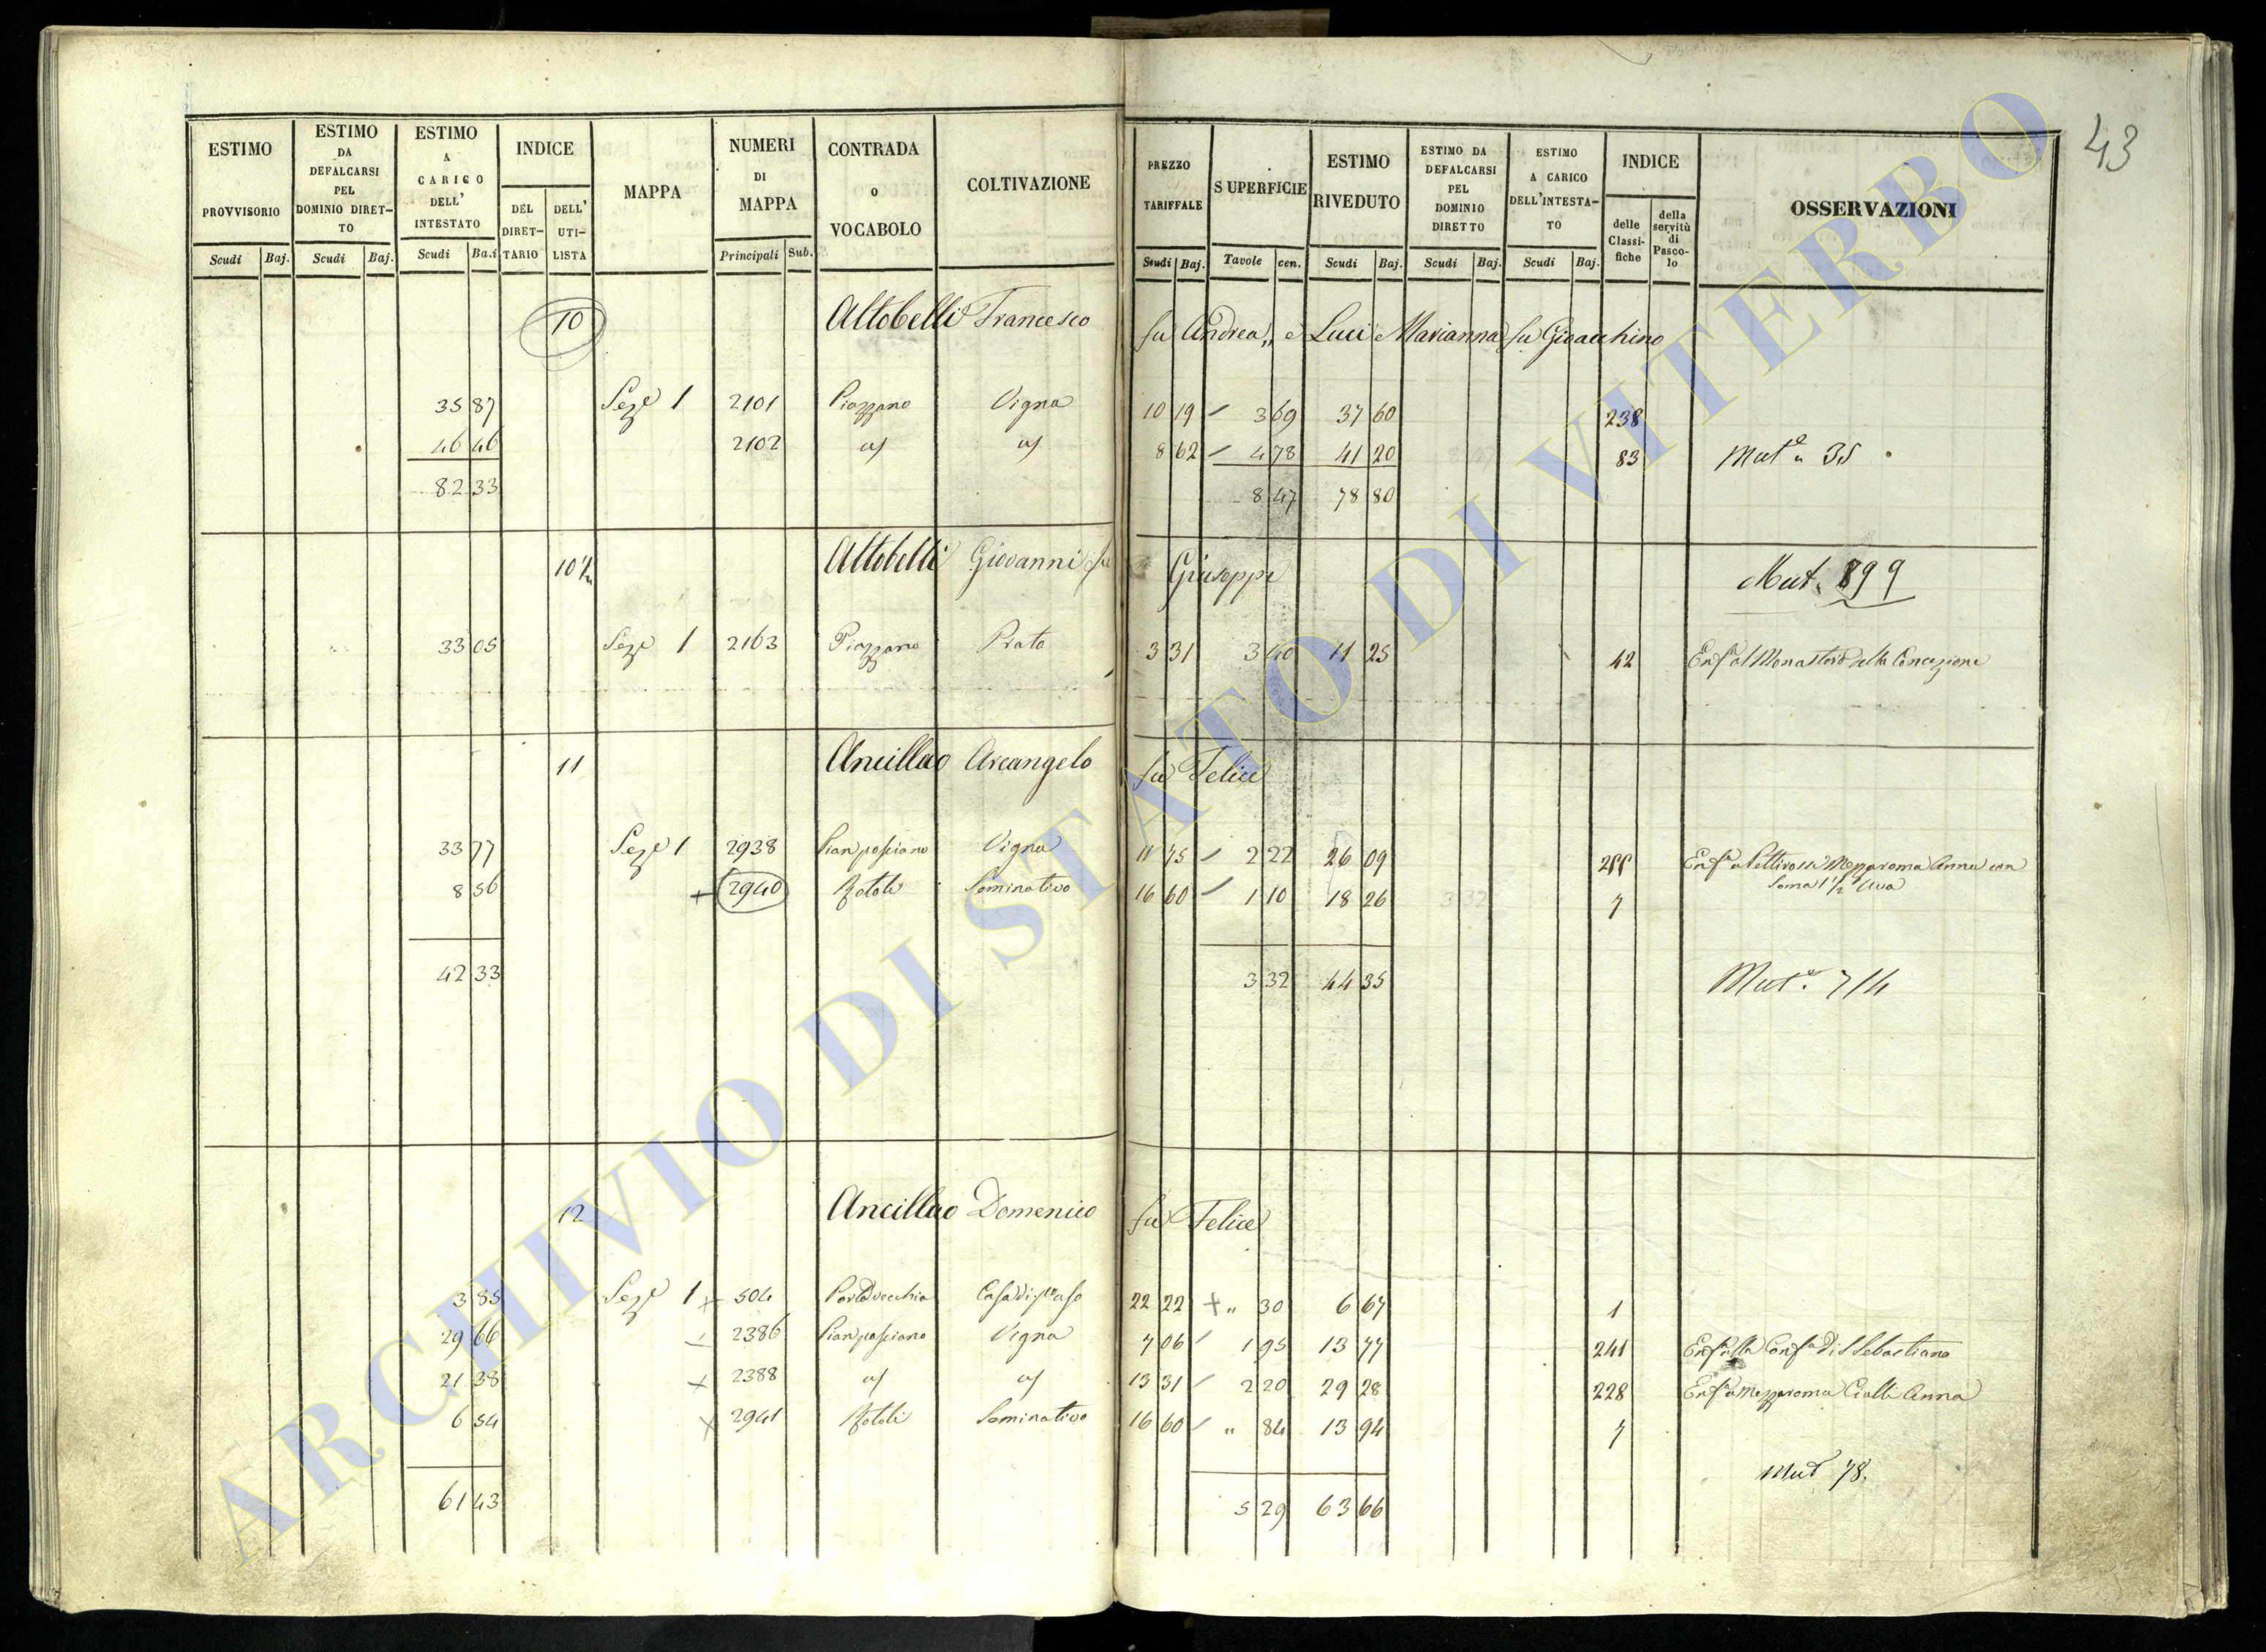 43
ESTIMO PROVVISORIO Scudi Baj.
ESTIMO DA DEFALCARSI PEL DOMINIO DIRET-TO Scudi Baj.
ESTIMO A CARICO DELL' INTESTATO Scudi Ba.i
INDICE DEL DIRET-TARIO DELL' UTI-LISTA
MAPPA
NUMERI DI MAPPA Principali Sub.
CONTRADA o VOCABOLO
COLTIVAZIONE
PREZZO TARIFFALE Scudi Baj.
SUPERFICIE Tavole cen.
ESTIMO RIVEDUTO Scudi Baj.
ESTIMO DA DEFALCARSI PEL DOMINIO DIRETTO Scudi Baj.
ESTIMO A CARICO DELL'INTESTA-TO Scudi Baj.
INDICE delle Classi-fiche della servitù di Pasco-lo
OSSERVAZIONI
10 Altobelli Francesco fu Andrea,, e Luci Marianna fu Gioacchino
35 87 Sezе 1 2101 Piazzano Vigna 10 19 3 69 37 60 238
46 46 2102 8 62 4 78 41 20 83 Mut.e 35
82 33 8 47 78 80
10 1/2 Altobelli Giovanni fu Giuseppe Mut. 899
33 05 Sezе 1 2163 Piazzano Prato 3 31 3 40 11 25 42 Enf.a al Monastero della Concezione
11 Ancillao Arcangelo fu Felice
33 77 Sezе 1 2938 Vigna 11 75 2 22 26 09 Enf.a Mezzaroma Anna con
Soma 1 1/2 Uva
8 56 + 2940 Rotoli Seminativo 16 60 1 10 18 26 7
42 33 3 32 44 35 Mut.e 714
12 Ancillao Domenico fu Felice
3 85 Sezе 1 504 Porta vecchia 22 22 + " 30 6 67 1
29 66 2386 Vigna 7 06 1 95 13 77 241 Enf.a alla Conf.a di S Sebastiano
21 38 2388 13 31 2 20 29 28 228 Enf.a Mezzaroma Anna
6 54 2941 Rotoli Seminativo 16 60 " 84 13 94 7
Mut 78.
61 43 5 29 63 66
ARCHIVIO DI STATO DI VITERBO